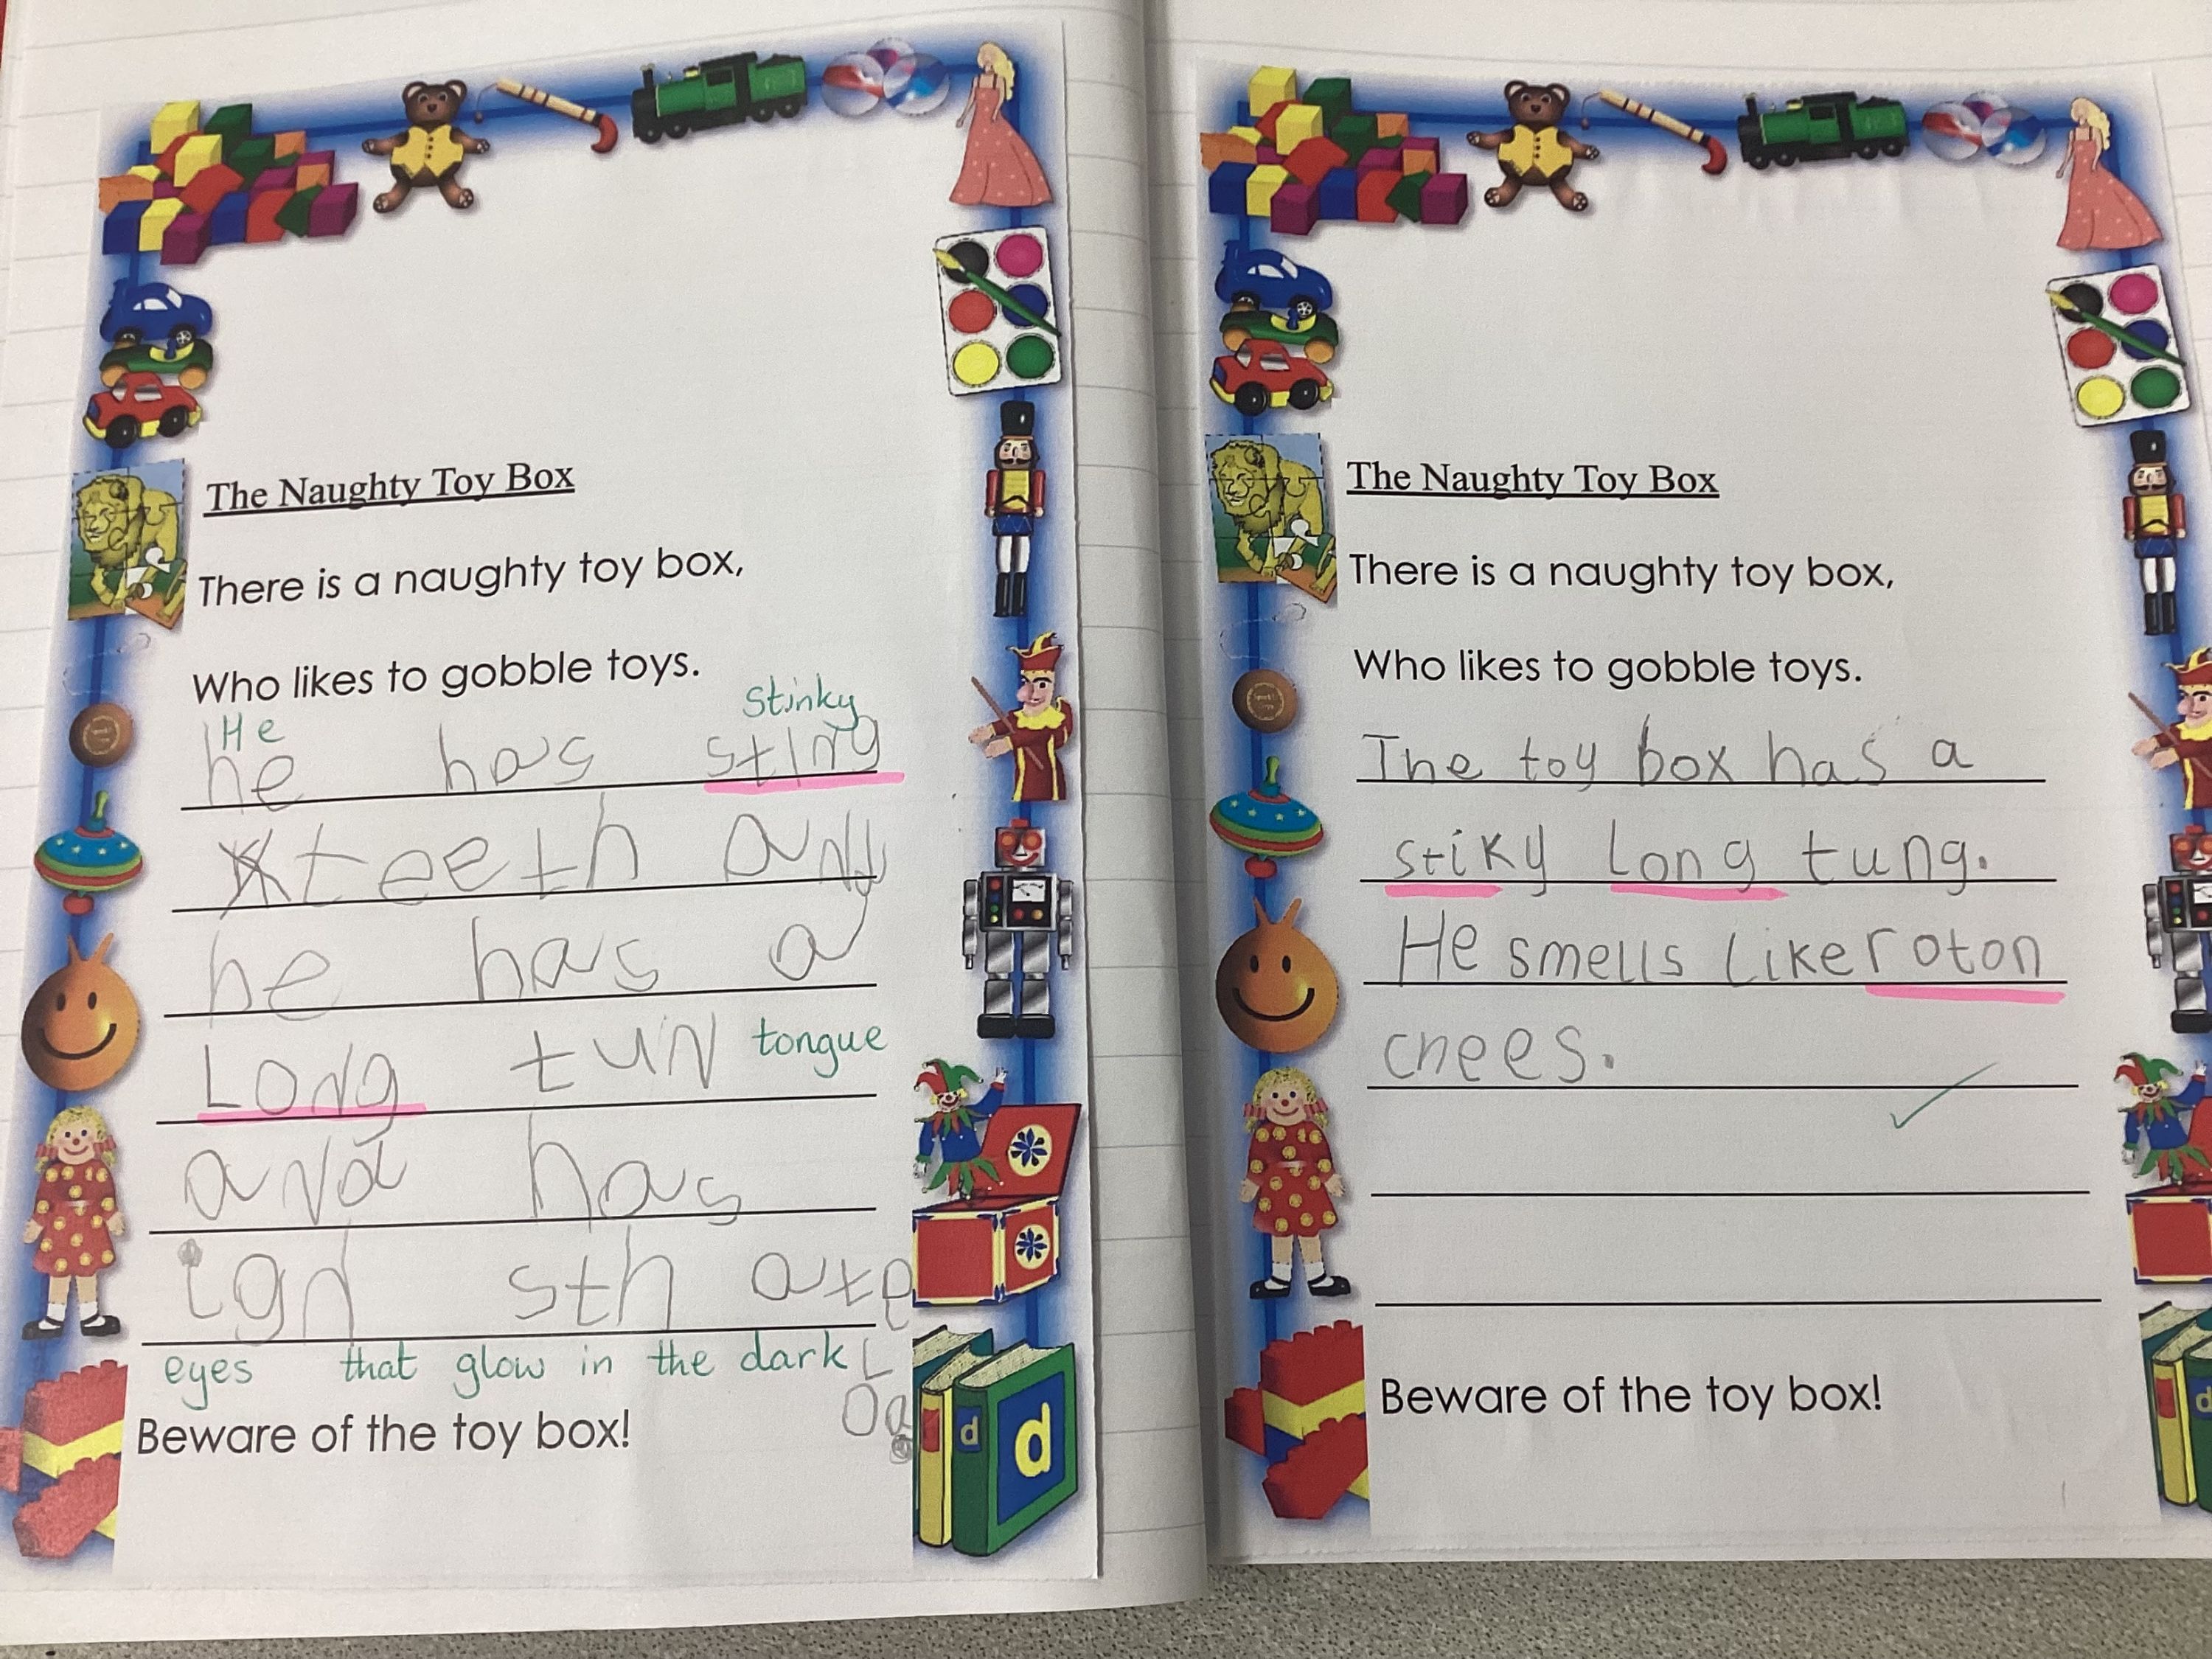 The Naughty Toy Box
There is a naughty toy box,
Who likes to gobble toys.
He Stinky
he has stiny
teeth and
he has a
Long tun tongue
and has
ign sth axe
eyes that glow in the dark
Beware of the toy box!
d d
The Naughty Toy Box
There is a naughty toy box,
Who likes to gobble toys.
The toy box has a
stiky Long tung.
He smells like roton
chees.
Beware of the toy box!